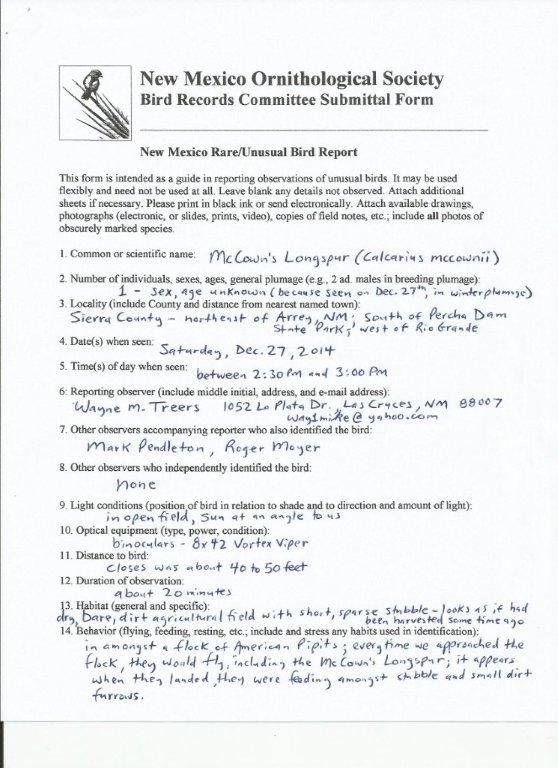 New Mexico Ornithological Society
Bird Records Committee Submittal Form
New Mexico Rare/Unusual Bird Report
This form is intended as a guide in reporting observations of unusual birds. It may be used
flexibly and need not be used at all. Leave blank any details not observed. Attach additional
sheets if necessary. Please print in black ink or send electronically. Attach available drawings,
photographs (electronic, or slides, prints, video), copies of field notes, etc.; include all photos of
obscurely marked species.
1. Common or scientific name: McCown's Longspur (Calcarius mccownii)
2. Number of individuals, sexes, ages, general plumage (e.g., 2 ad. males in breeding plumage):
1 - sex, age unknown (because seen on Dec. 27th, in winter plumage)
3. Locality (include County and distance from nearest named town):
Sierra County - northeast of Arrey, NM; South of Percha Dam
State Park; west of Rio Grande
4. Date(s) when seen:
Saturday, Dec. 27, 2014
5. Time(s) of day when seen:
between 2:30 PM and 3:00 PM
6: Reporting observer (include middle initial, address, and e-mail address):
Wayne M. Treers 1052 La Plata Dr., Las Cruces, NM 88007
way1mike@yahoo.com
7. Other observers accompanying reporter who also identified the bird:
Mark Pendleton, Roger Moyer
8. Other observers who independently identified the bird:
none
9. Light conditions (position of bird in relation to shade and to direction and amount of light):
in open field, sun at an angle to us
10. Optical equipment (type, power, condition):
binoculars - 8x42 Vortex Viper
11. Distance to bird:
closes was about 40 to 50 feet
12. Duration of observation:
about 20 minutes
13. Habitat (general and specific):
dry, bare, dirt agricultural field with short, sparse stubble - looks as if had
been harvested some time ago
14. Behavior (flying, feeding, resting, etc.; include and stress any habits used in identification):
in amongst a flock of American Pipits; everytime we approached the
flock, they would fly, including the McCown's Longspur; it appears
when they landed, they were feeding amongst stubble and small dirt
furrows.